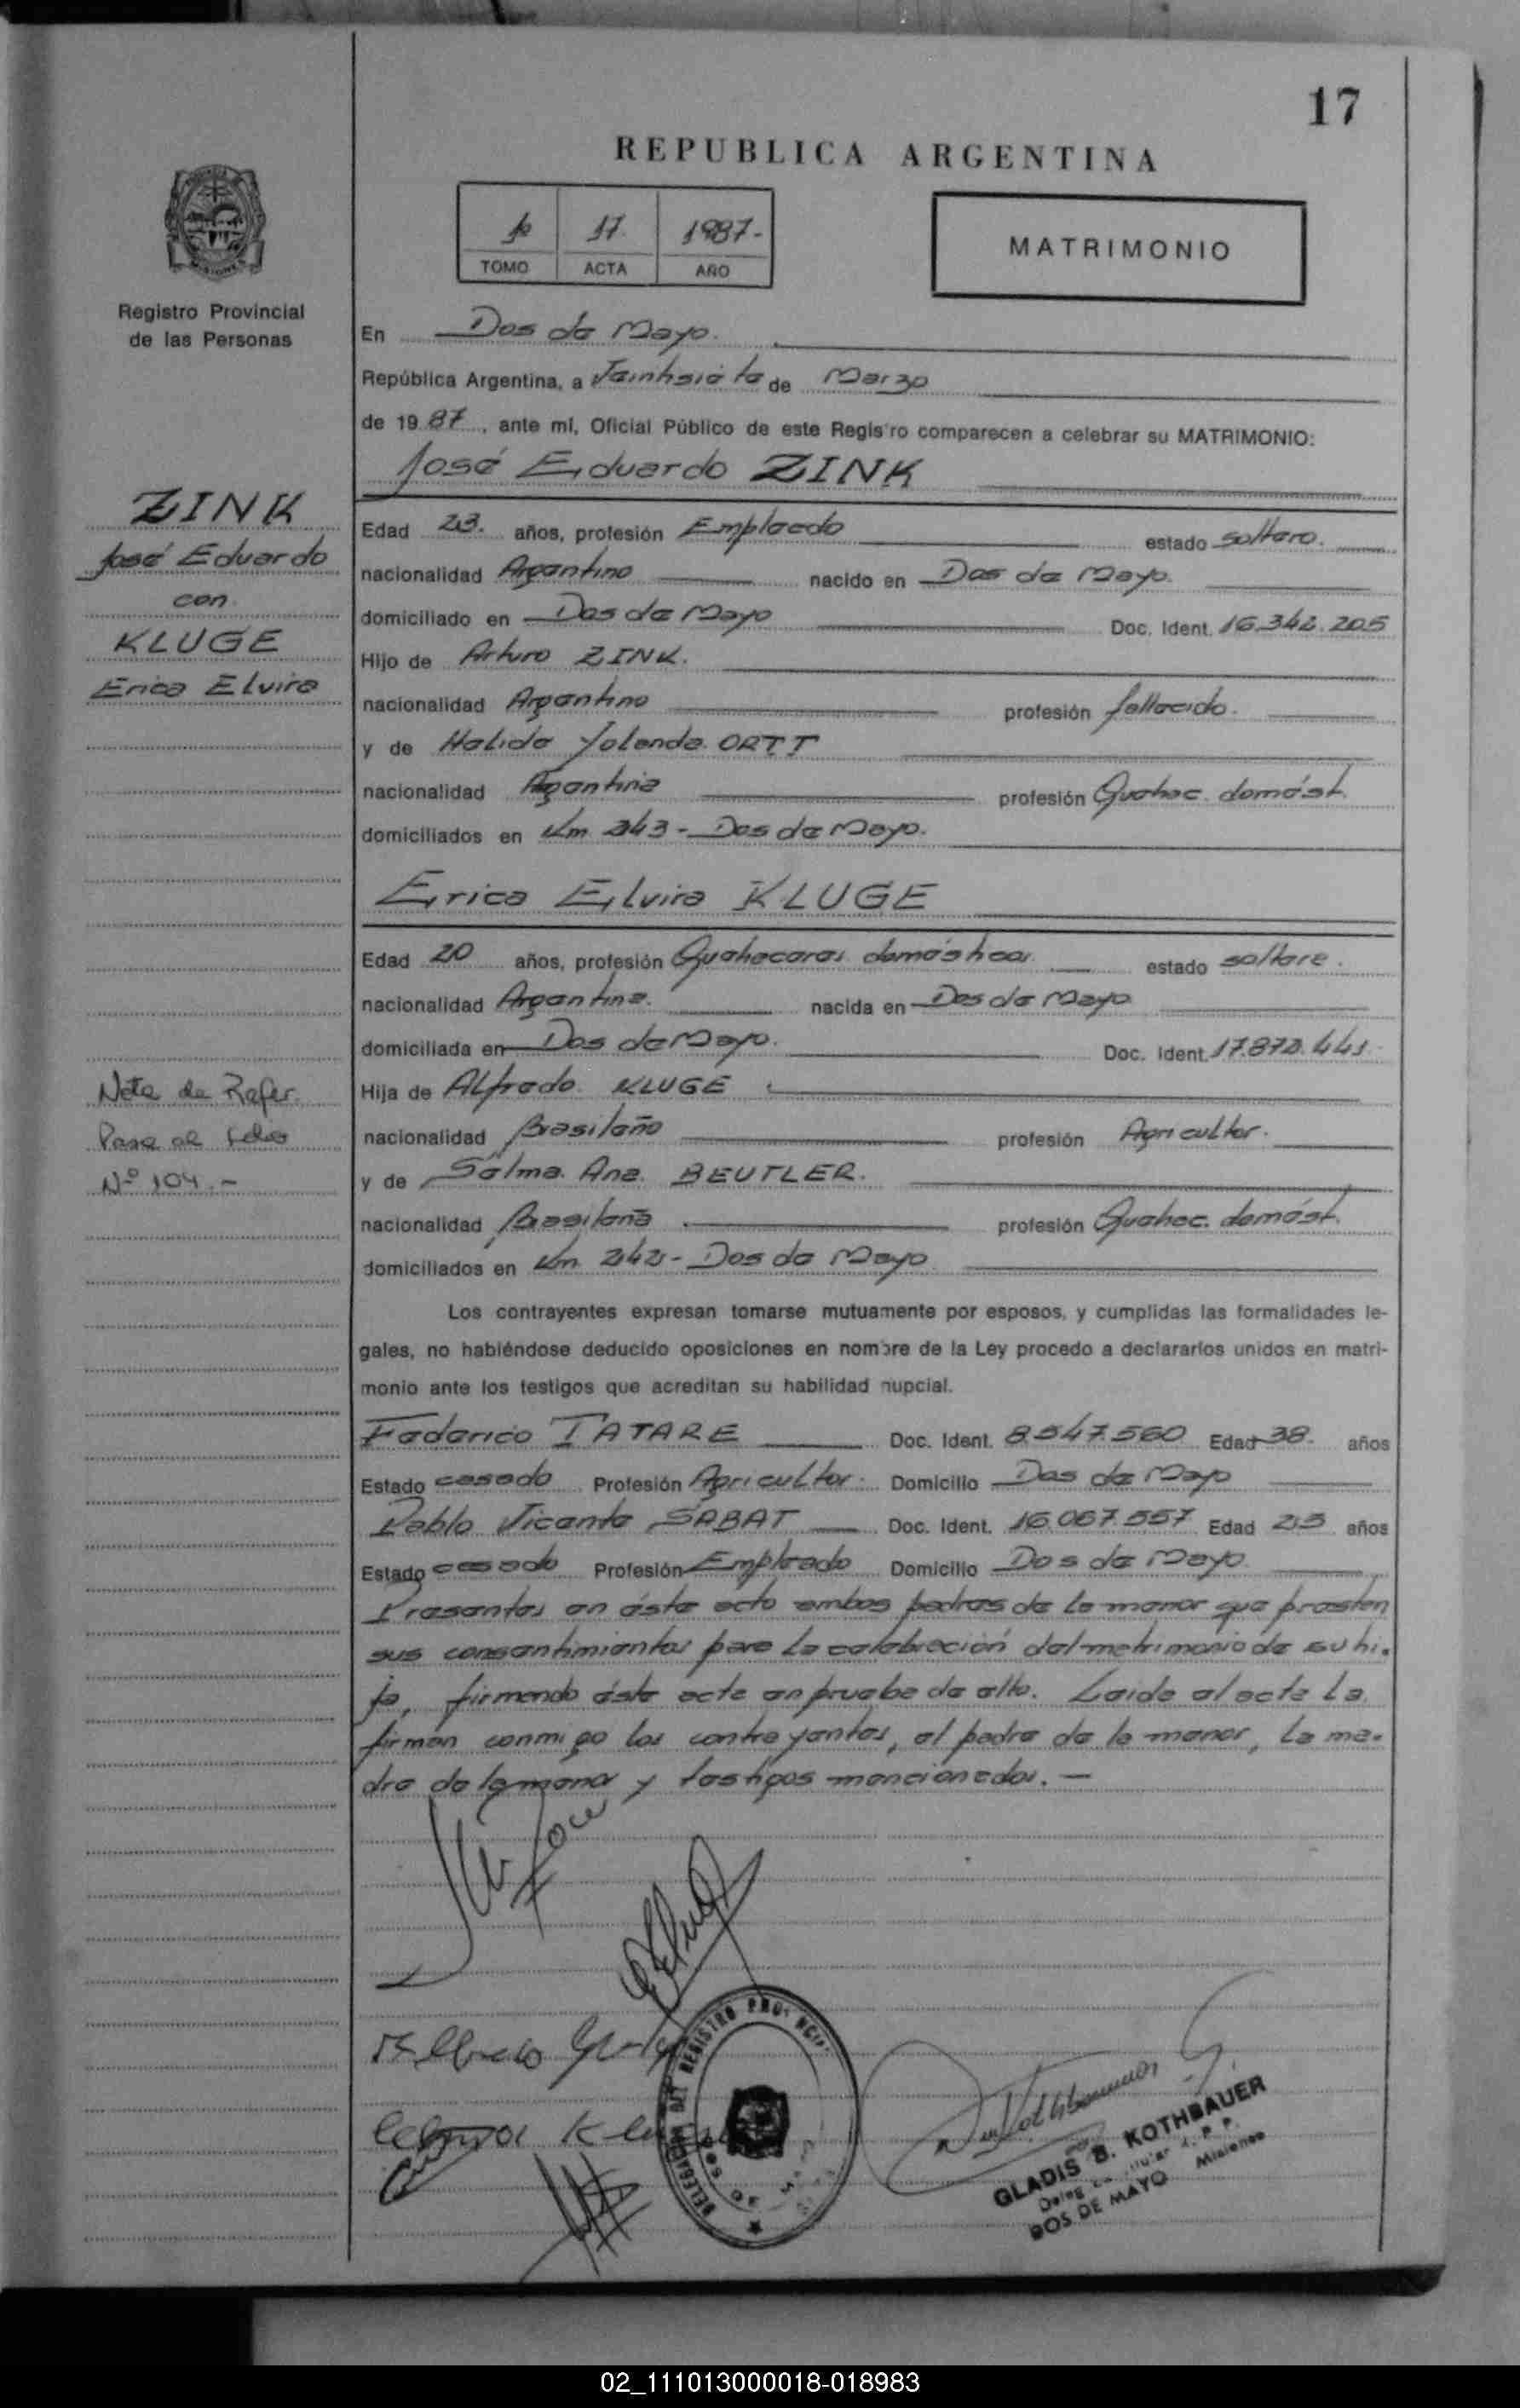 17
REPUBLICA ARGENTINA
1º 17 1987.-
TOMO ACTA AÑO
MATRIMONIO
Registro Provincial
de las Personas
En Dos de Mayo.
República Argentina, a Veintisiete de Marzo
de 1987, ante mí, Oficial Público de este Registro comparecen a celebrar su MATRIMONIO:
José Eduardo ZINK
ZINK
José Eduardo
con
KLUGE
Erica Elvira
Edad 23. años, profesión Empleado estado soltero.
nacionalidad Argentino nacido en Dos de Mayo.
domiciliado en Dos de Mayo Doc. Ident. 16.342.205
Hijo de Arturo ZINK.
nacionalidad Argentino profesión fallecido.
y de Halida Yolanda ORTT
nacionalidad Argentina profesión Quehac. domést.
domiciliados en Km 243 - Dos de Mayo.
Erica Elvira KLUGE
Edad 20 años, profesión Quehaceres domésticos estado soltera.
nacionalidad Argentina. nacida en Dos de Mayo
domiciliada en Dos de Mayo. Doc. Ident. 17.872.441
Hija de Alfredo KLUGE
nacionalidad Brasileño profesión Agricultor.
y de Selma Ana BEUTLER.
nacionalidad Brasileña profesión Quehac. domést.
domiciliados en Km 242 - Dos de Mayo
Nota de Refer.
Pasa al folio
Nº 104.-
Los contrayentes expresan tomarse mutuamente por esposos, y cumplidas las formalidades le-
gales, no habiéndose deducido oposiciones en nombre de la Ley procedo a declararlos unidos en matri-
monio ante los testigos que acreditan su habilidad nupcial.
Federico TATARE Doc. Ident. 8.547.560 Edad 38. años
Estado casado Profesión Agricultor. Domicilio Dos de Mayo
Pablo Vicente SABAT Doc. Ident. 16.067.557 Edad 23 años
Estado casado Profesión Empleado Domicilio Dos de Mayo
Presentes en éste acto ambos padres de la menor que prestan
sus consentimientos para la celebración del matrimonio de su hi-
ja, firmando ésta acta en prueba de ello. Leida el acta la
firman conmigo los contrayentes, el padre de la menor, la ma-
dre de la menor y testigos mencionados. —
DELEGACION DEL REGISTRO PROVINCIAL
DOS DE MAYO
GLADIS B. KOTHBAUER
DOS DE MAYO Misiones
02_111013000018-018983